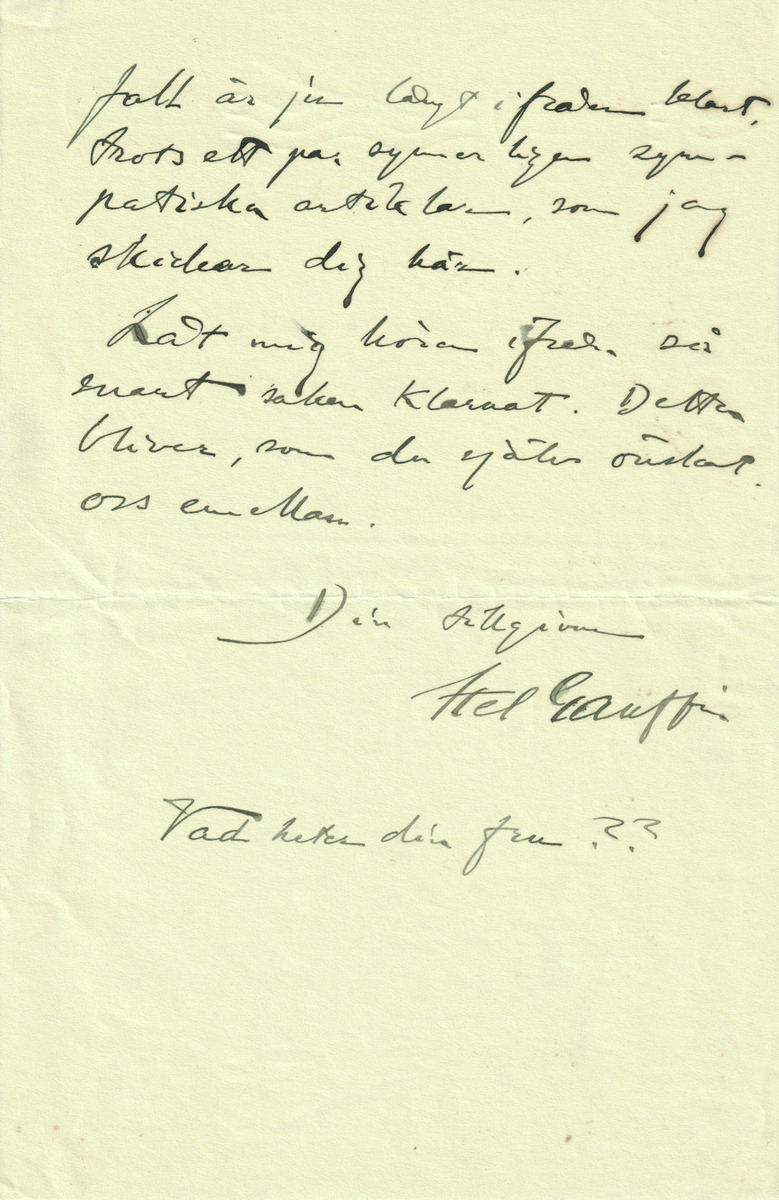 fall är ju långt ifrån klart,
trots ett par synnerligen sym-
patiska artiklar, som jag
skickar dig här.
Låt mig höra ifrån så
snart saken klarnat. Detta
bliver, som du själv önskat,
oss emellan.
Din tillgivne
Axel Gauffin
Vad heter din fru ??